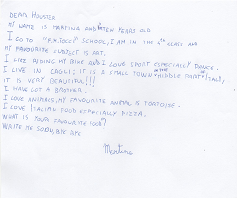 DEAR HOUSTER
MY NAME IS MARTINA AND TEN YEARS OLD
I GO TO SCHOOL, I AM IN THE 4th CLASS AND
MY FAVOURITE SUBJECT IS ART.
I LIKE RIDING MY BIKE AND I LOVE SPORT ESPECIALLY DANCE.
I LIVE IN CAGLI; IT IS A SMALL TOWN IN THE MIDDLE OF ITALY,
IT IS VERY BEAUTIFUL!!!
I HAVE GOT A BROTHER.
I LOVE ANIMALS, MY FAVOURITE ANIMAL IS TORTOISE.
I LOVE ITALIAN FOOD ESPECIALLY PIZZA.
WHAT IS YOUR FAVOURITE FOOD?
WRITE ME SOON, BYE BYE
Martina